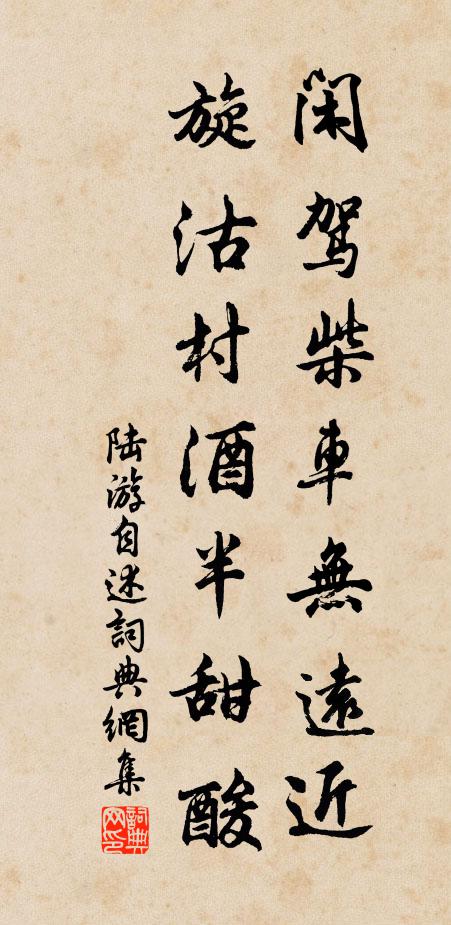 閑駕柴車無遠近
旋沽村酒半甜酸
陸游自述詞典網集
詞典
网印